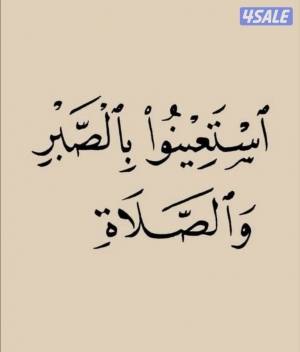 4SALE
ٱسْتَعِينُوا۟ بِٱلْصَّبْرِ
وَٱلْصَّلَاةِ